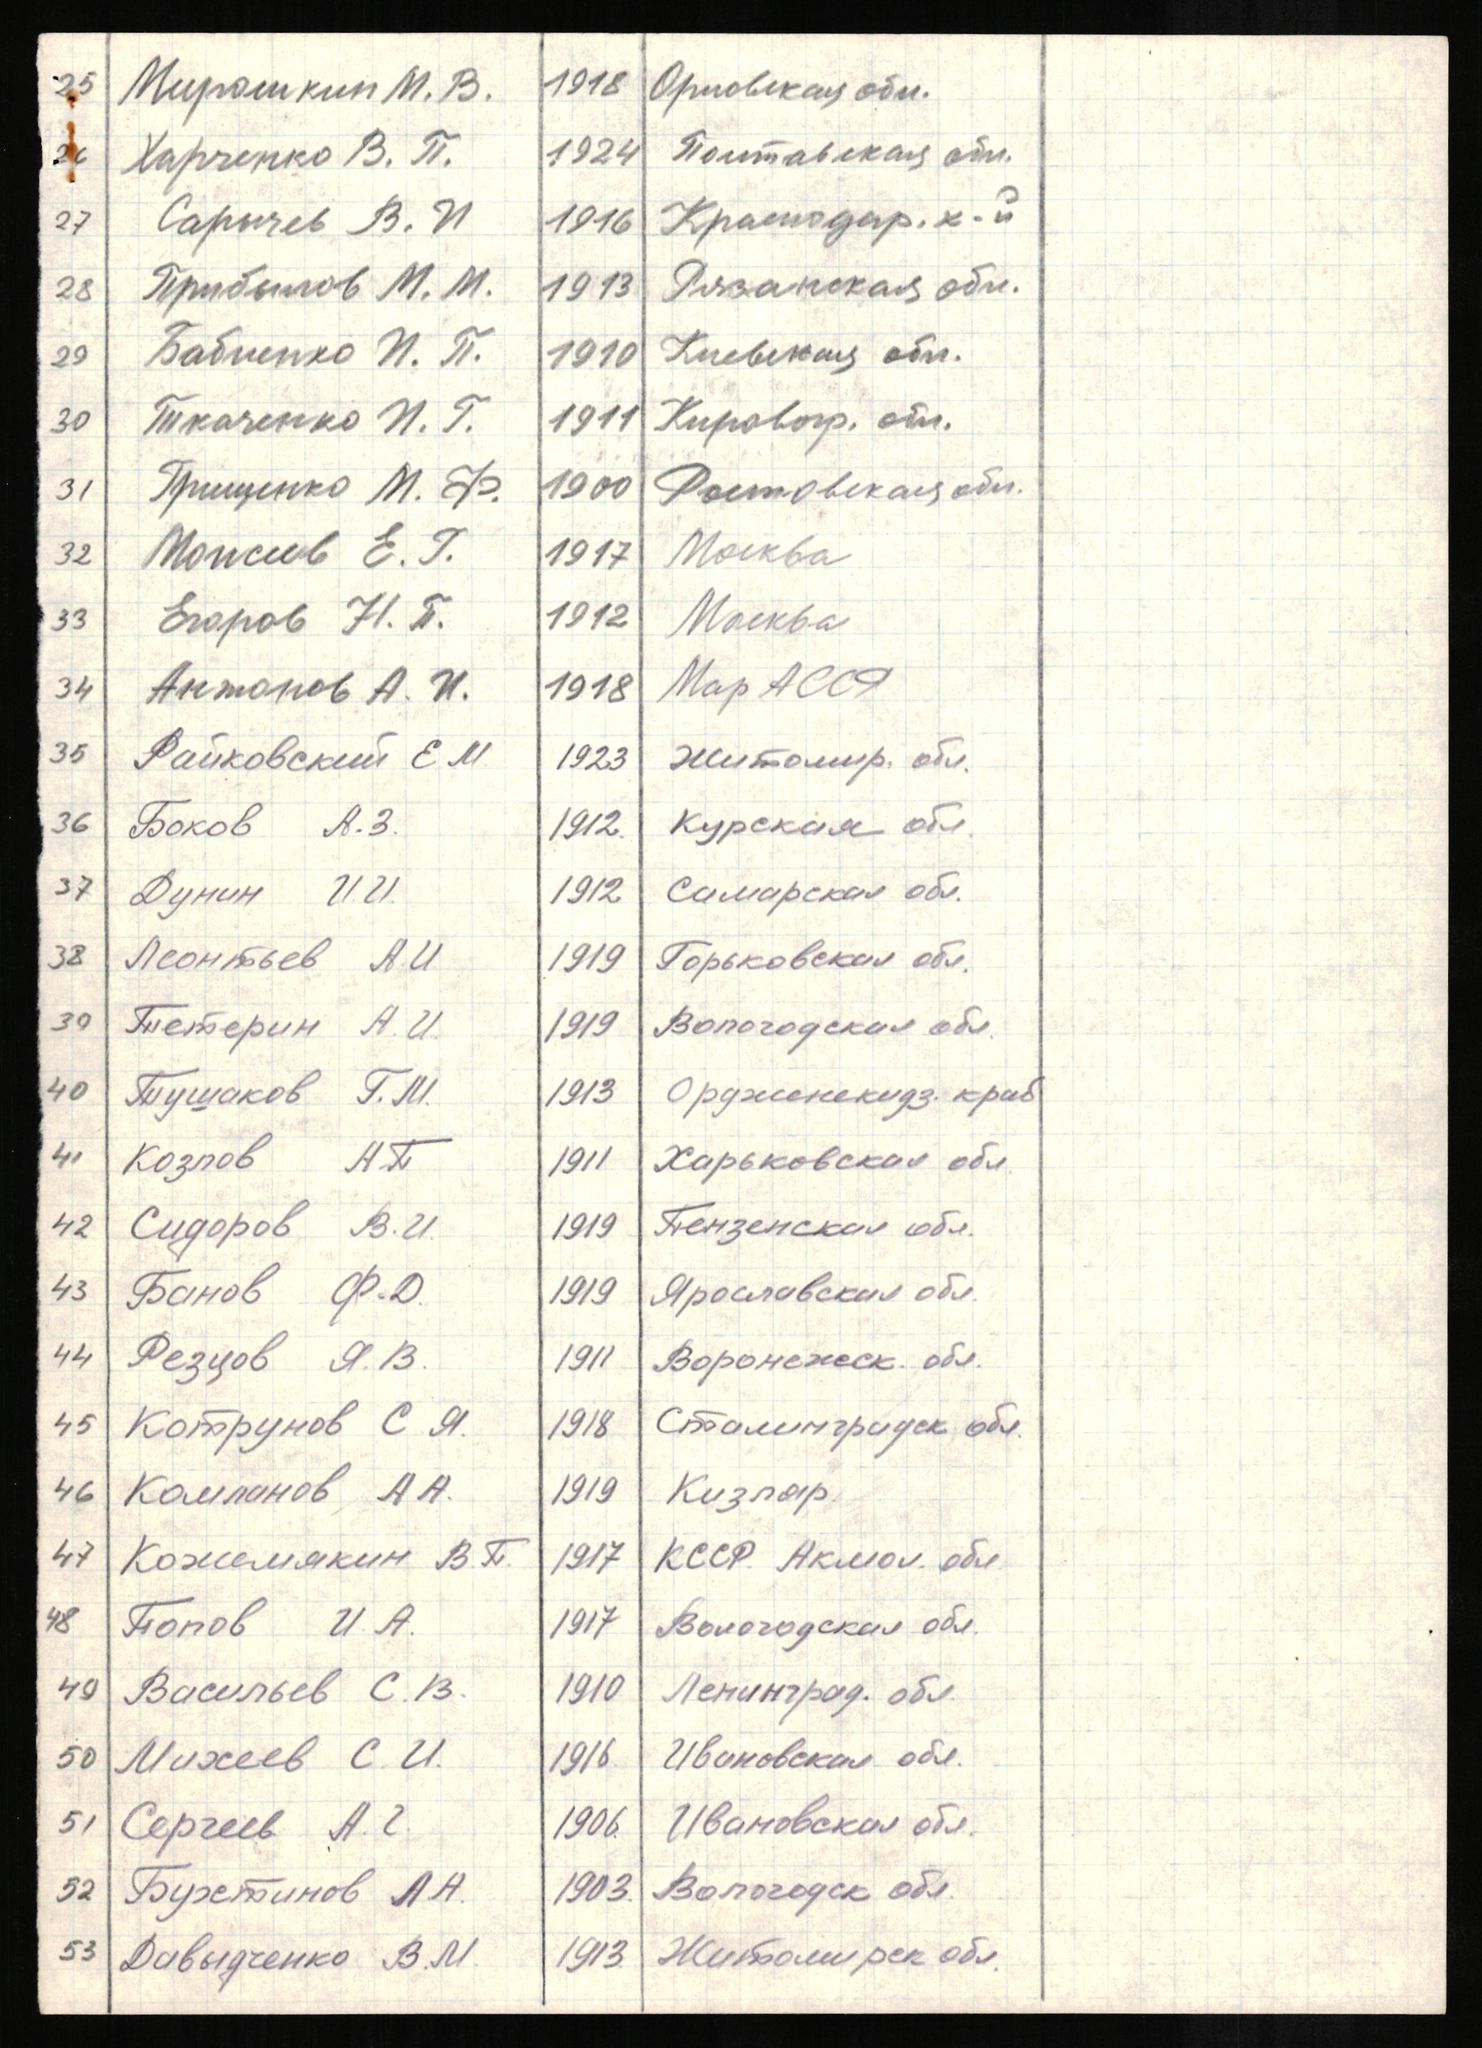 25 Мирошкин М. В. 1918 Орловская обл.
26 Харченко В. П. 1924 Полтавская обл.
27 Сарычев В. И 1916 Краснодар. к-й
28 Прибылов М. М. 1913 Рязанская обл.
29 Бабиенко И. П. 1910 Киевская обл.
30 Ткаченко И. Г. 1911 Кировогр. обл.
31 Грищенко М. Ф. 1900 Ростовская обл.
32 Моисеев Е. Г. 1917 Москва
33 Егоров Н. П. 1912 Москва
34 Антонов А. И. 1918 Мар АССР
35 Райковский Е М 1923 Житомир. обл.
36 Боков А.З. 1912. Курская обл
37 Дунин И.И. 1912 Самарская обл.
38 Леонтьев А.И 1919 Горьковская обл.
39 Тетерин А.И. 1919 Вологодская обл.
40 Тушаков Г.М. 1913 Ордженекидз. край
41 Козлов А П 1911 Харьковская обл
42 Сидоров В.И. 1919 Пензенская обл.
43 Банов Ф.Д. 1919 Ярославская обл.
44 Резцов Я.В. 1911 Воронежск. обл.
45 Котрунов С Я. 1918 Сталинградск обл.
46 Компанов А А. 1919 Кизляр.
47 Кожемякин В П. 1917 КССР. Акмол. обл
48 Попов И А. 1917 Вологодская обл.
49 Васильев С.В. 1910 Ленинград. обл.
50 Михеев С. И. 1916. Ивановская обл.
51 Сергеев А. Г. 1906. Ивановская обл.
52 Бухтинов А А. 1903. Вологодск обл.
53 Давыдченко В.М. 1913. Житомирск обл.